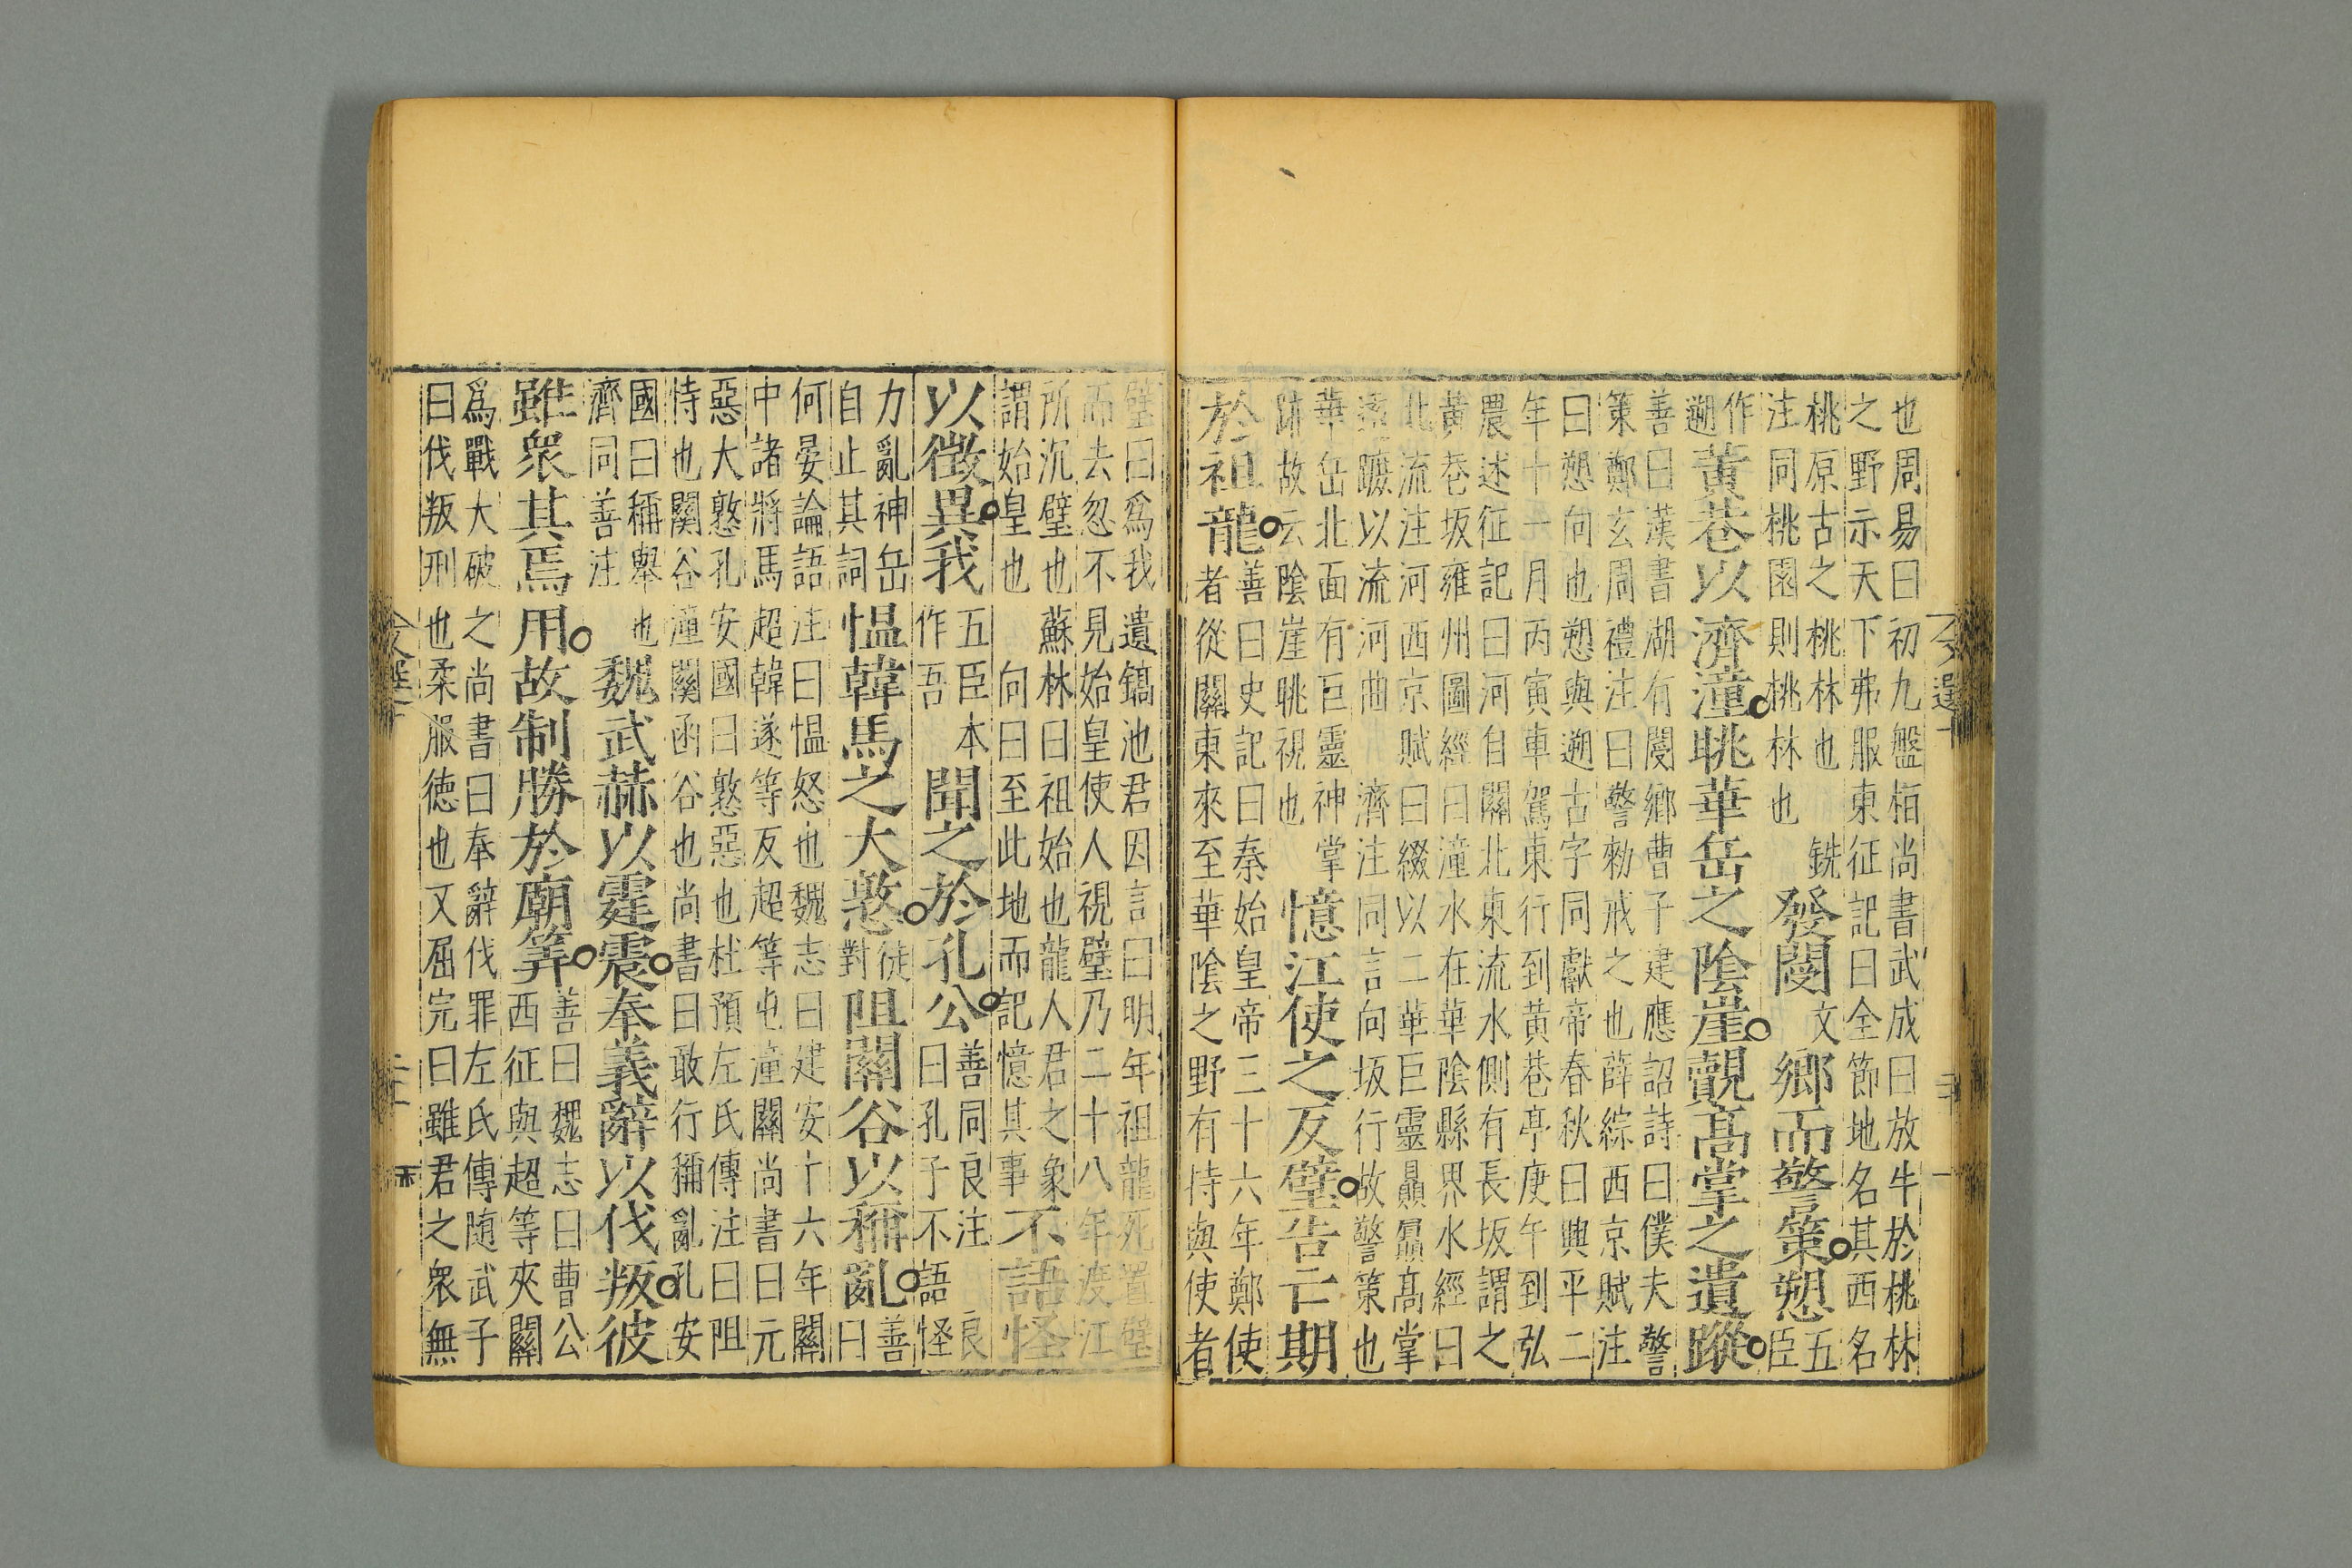 也周易曰初九盤桓尚書武成曰放牛於桃林
之野示天下弗服東征記曰全節地名其西名
桃原古之桃林也
注同桃園則桃林也
銑
發閿
文
鄉而警策愬
五
臣
作
遡
黃巷以濟潼眺華岳之陰崖覿高掌之遺蹤
善曰漢書湖有閿鄉曹子建應詔詩曰僕夫警
策鄭玄周禮注曰警勑戒之也薛綜西京賦注
曰愬向也愬與遡古字同獻帝春秋曰興平二
年十一月丙寅車駕東行到黃巷亭庚午到弘
農述征記曰河自關北東流水側有長坂謂之
黃巷坂雍州圖經曰潼水在華陰縣界水經曰
北流注河西京賦曰綴以二華巨靈贔屭高掌
遠蹠以流河曲
濟注同言向坂行故警策也
華岳北面有巨靈神掌
跡故云陰崖眺視也
憶江使之反璧告亡期
於祖龍
善曰史記曰秦始皇帝三十六年鄭使
者從關東來至華陰之野有持與使者
文選十
璧曰爲我遺鎬池君因言曰明年祖龍死置璧
而去忽不見始皇使人視璧乃二十八年渡江
所沉璧也蘇林曰祖始也龍人君之象
謂始皇也
向曰至此地而記憶其事
不語怪
以徵異我
五臣本
作吾
聞之於孔公
善同良注
曰孔子不語怪
良
力亂神岳
自止其詞
愠韓馬之大憝
徒
對
阻關谷以稱亂
善
曰
何晏論語注曰愠怒也魏志曰建安十六年關
中諸將馬超韓遂等反超等屯潼關尚書曰元
惡大憝孔安國曰憝惡也杜預左氏傳注曰阻
恃也關谷潼關函谷也尚書曰敢行稱亂孔安
國曰稱舉也
濟同善注
魏武赫以霆震奉義辭以伐叛彼
雖衆其焉用故制勝於廟筭
善曰魏志曰曹公
西征與超等夾關
爲戰大破之尚書曰奉辭伐罪左氏傳隨武子
曰伐叛刑也柔服徳也又屈完曰雖君之衆無